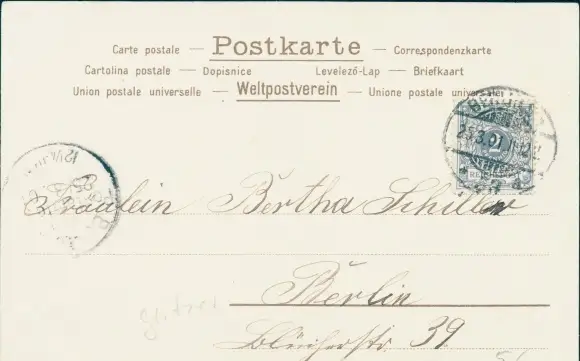 Carte postale — Postkarte — Correspondenzkarte
Cartolina postale — Dopisnice Levelező-Lap — Briefkaart
Union postale universelle — Weltpostverein — Unione postale universale
25.3.01
Fräulein Bertha Schiller
Berlin
Blücherstr. 39